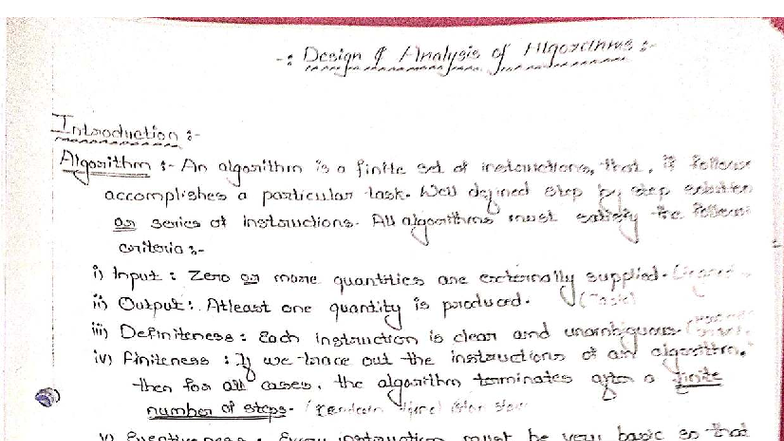 -: Design & Analysis of Algorithms :-
Introduction :-
Algorithm :- An algorithm is a finite set of instructions, that, if follows
accomplishes a particular task. Well defined step by step solution
or series of instructions. All algorithms must satisfy the
criteria :-
i) Input : Zero or more quantities are externally supplied.
ii) Output : Atleast one quantity is produced.
iii) Definiteness : Each instruction is clear and unambiguous.
iv) Finiteness : If we trace out the instructions of an algorithm,
then for all cases, the algorithm terminates after a finite
number of steps.
v) Every instruction must be very basic so that